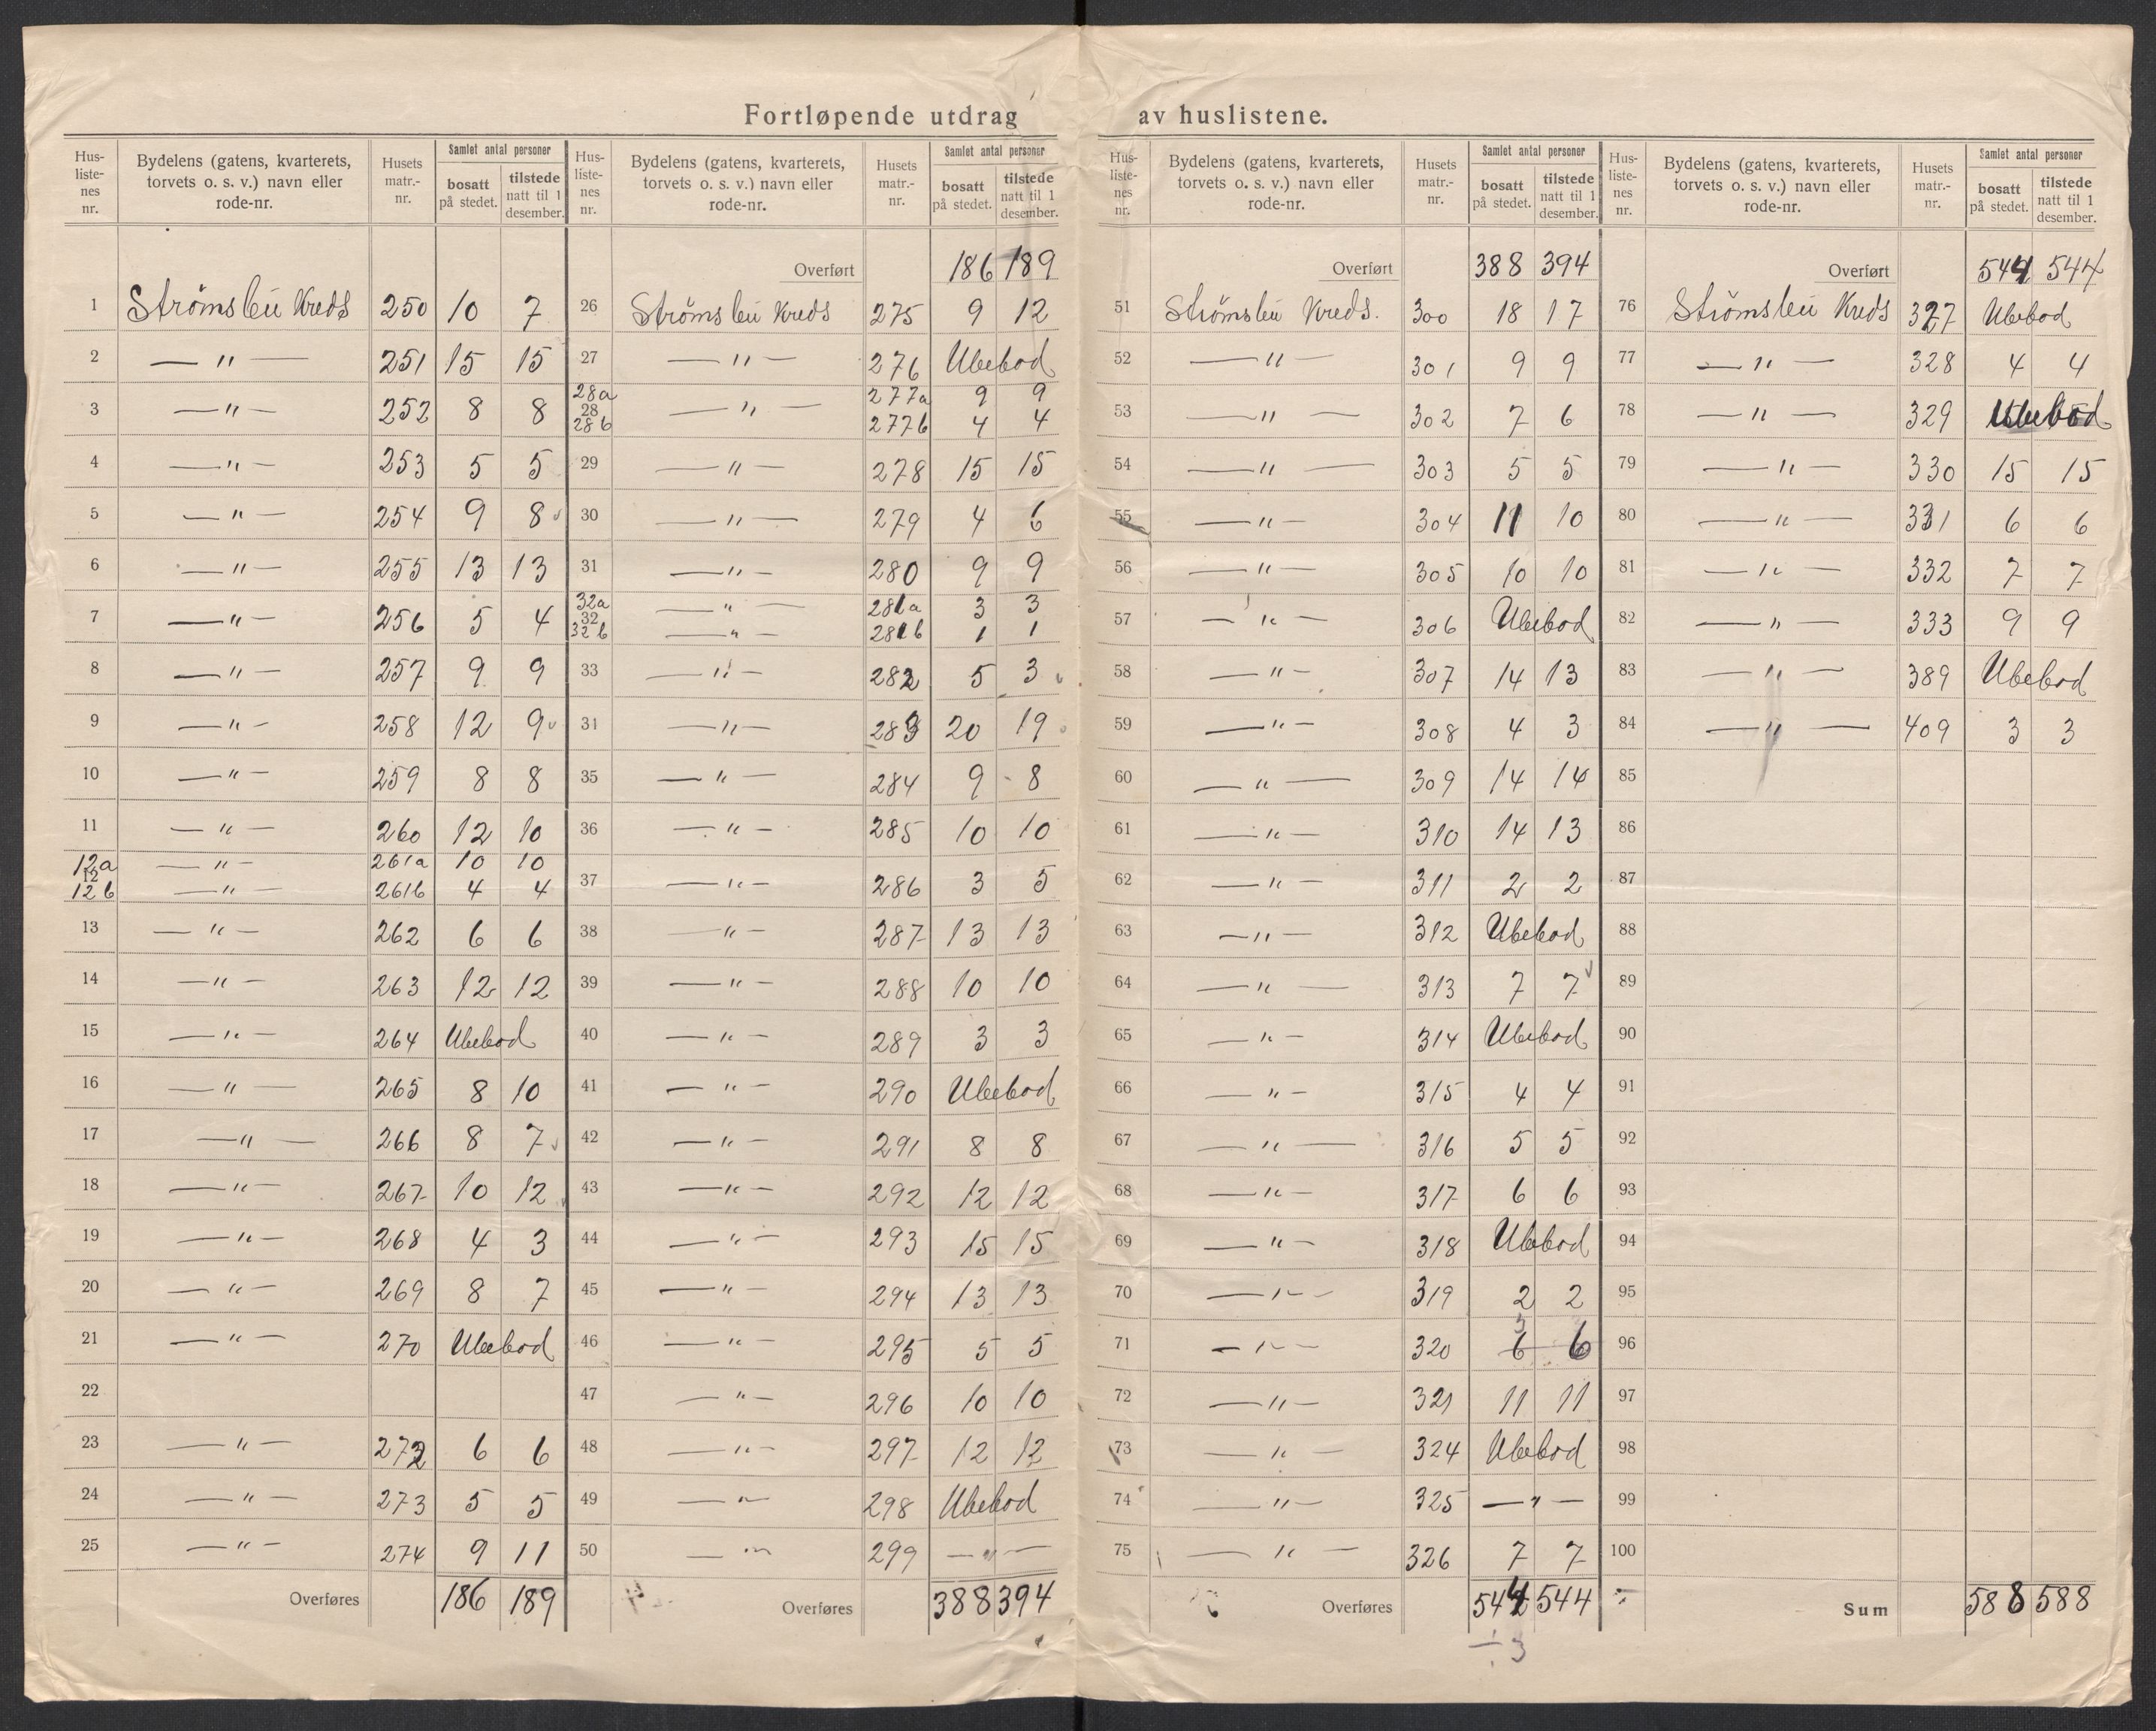 Fortløpende utdrag av huslistene.
Hus-liste-nes nr. | Bydelens (gatens, kvarterets, torvets o. s. v.) navn eller rode-nr. | Husets matr.-nr. | Samlet antal personer | bosatt på stedet. | tilstede natt til 1 desember.
1 Strömsleii Kreds 250 10 7
2 — " — 251 15 15
3 — " — 252 8 8
4 — " — 253 5 5
5 — " — 254 9 8
6 — " — 255 13 13
7 — " — 256 5 4
8 — " — 257 9 9
9 — " — 258 12 9
10 — " — 259 8 8
11 — " — 260 12 10
12a — " — 261a 10 10
12
12b — " — 261b 4 4
13 — " — 262 6 6
14 — " — 263 12 12
15 — " — 264 Ubebod
16 — " — 265 8 10
17 — " — 266 8 7
18 — " — 267 10 12
19 — " — 268 4 3
20 — " — 269 8 7
21 — " — 270 Ubebod
22
23 — " — 272 6 6
24 — " — 273 5 5
25 — " — 274 9 11
Overføres 186 189
Hus-liste-nes nr. | Bydelens (gatens, kvarterets, torvets o. s. v.) navn eller rode-nr. | Husets matr.-nr. | Samlet antal personer | bosatt på stedet. | tilstede natt til 1 desember.
Overført 186 189
26 Strömsleii Kreds 275 9 12
27 — " — 276 Ubebod
28a — " — 277a 9 9
28
28b 277b 4 4
29 — " — 278 15 15
30 — " — 279 4 6
31 — " — 280 9 9
32a — " — 281a 3 3
32
32b — " — 281b 1 1
33 — " — 282 5 3
31 — " — 283 20 19
35 — " — 284 9 8
36 — " — 285 10 10
37 — " — 286 3 5
38 — " — 287 13 13
39 — " — 288 10 10
40 — " — 289 3 3
41 — " — 290 Ubebod
42 — " — 291 8 8
43 — " — 292 12 12
44 — " — 293 15 15
45 — " — 294 13 13
46 — " — 295 5 5
47 — " — 296 10 10
48 — " — 297 12 12
49 — " — 298 Ubebod
50 — " — 299 — " —
Overføres 388 394
Hus-liste-nes nr. | Bydelens (gatens, kvarterets, torvets o. s. v.) navn eller rode-nr. | Husets matr.-nr. | Samlet antal personer | bosatt på stedet. | tilstede natt til 1 desember.
Overført 388 394
51 Strömsleii Kreds. 300 18 17
52 — " — 301 9 9
53 — " — 302 7 6
54 — " — 303 5 5
55 — " — 304 11 10
56 — " — 305 10 10
57 — " — 306 Ubebod
58 — " — 307 14 13
59 — " — 308 4 3
60 — " — 309 14 14
61 — " — 310 14 13
62 — " — 311 2 2
63 — " — 312 Ubebod
64 — " — 313 7 7
65 — " — 314 Ubebod
66 — " — 315 4 4
67 — " — 316 5 5
68 — " — 317 6 6
69 — " — 318 Ubebod
70 — " — 319 2 2
3
71 — " — 320 6 6
72 — " — 321 11 11
73 — " — 324 Ubebod
74 — " — 325 — " —
75 — " — 326 7 7
Overføres 544 544
÷ 3
Hus-liste-nes nr. | Bydelens (gatens, kvarterets, torvets o. s. v.) navn eller rode-nr. | Husets matr.-nr. | Samlet antal personer | bosatt på stedet. | tilstede natt til 1 desember.
Overført 544 544
76 Strömsleii Kreds 327 Ubebod
77 — " — 328 4 4
78 — " — 329 Ubebod
79 — " — 330 15 15
80 — " — 331 6 6
81 — " — 332 7 7
82 — " — 333 9 9
83 — " — 389 Ubebod
84 — " — 409 3 3
85
86
87
88
89
90
91
92
93
94
95
96
97
98
99
100
Sum 588 588